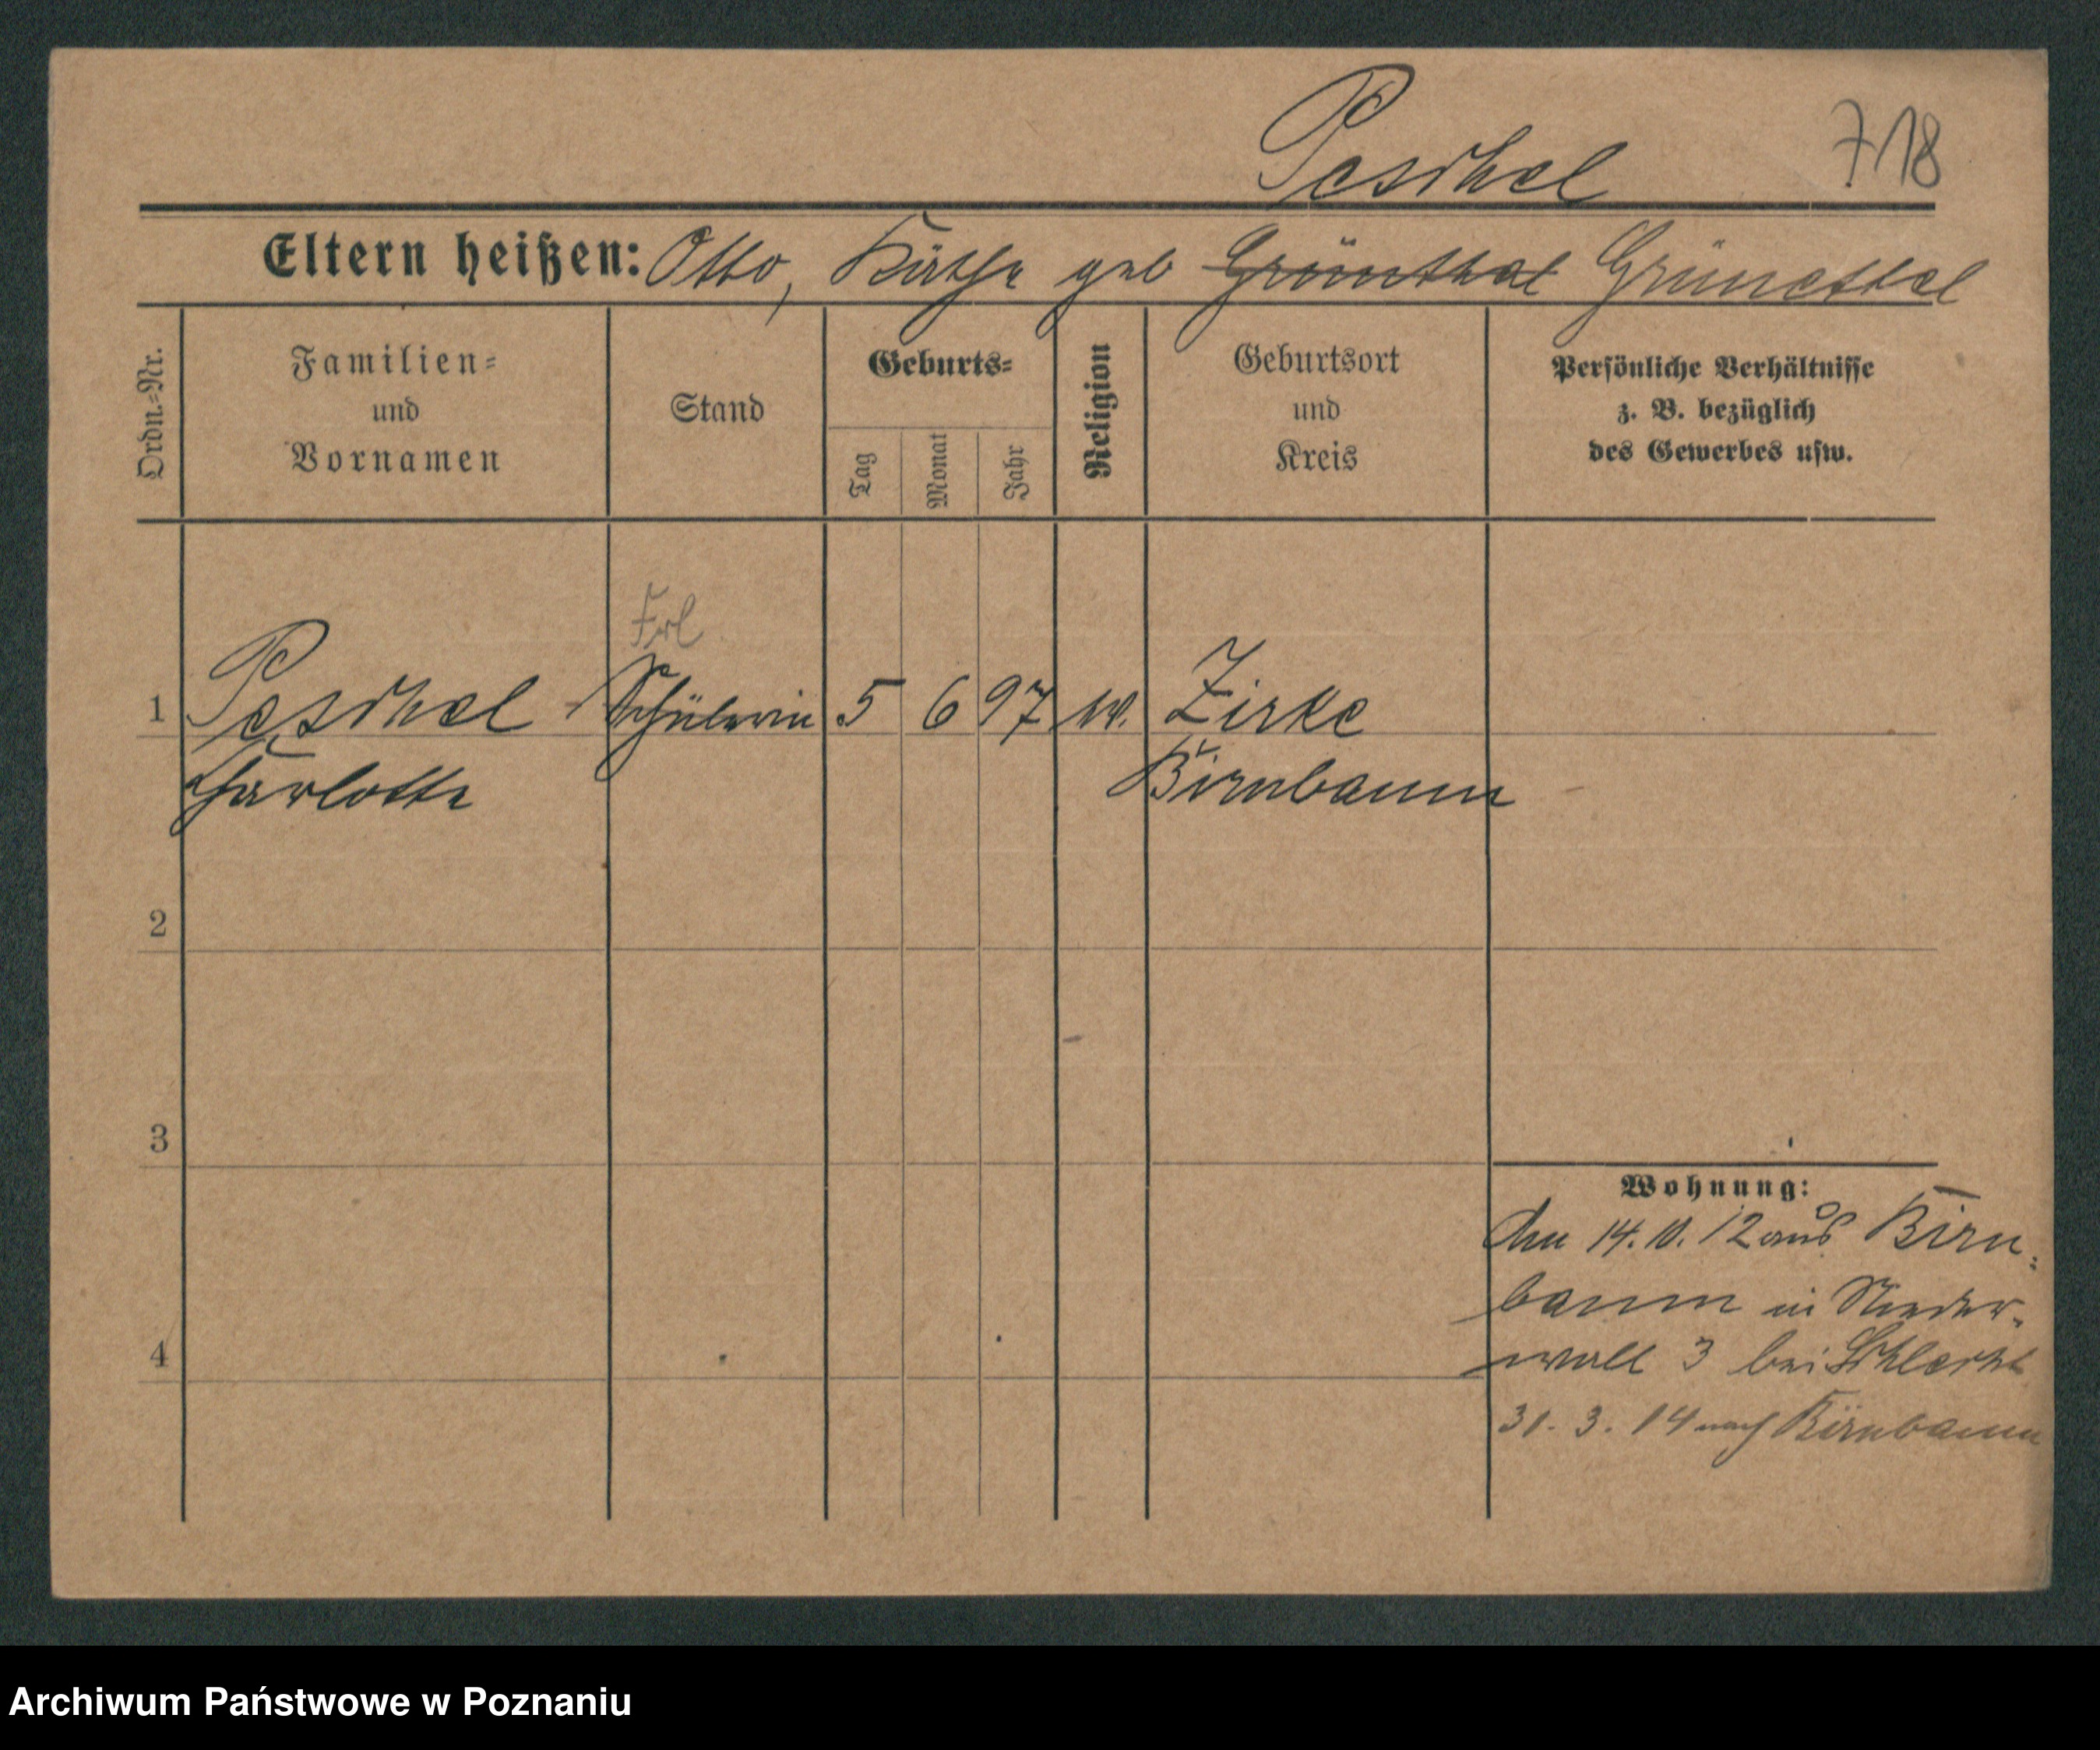 Peschel 718
Eltern heißen: Otto, Käthe geb Grünthal Grünettel
Ordn.-Nr.
Familien-
und
Vornamen
Stand
Geburts-
Tag
Monat
Jahr
Religion
Geburtsort
und
Kreis
Persönliche Verhältnisse
z. B. bezüglich
des Gewerbes usw.
Frl
1 Peschel Schülerin 5 6 97 Zirke
Charlotte Birnbaum
2
3
4
Wohnung:
Den 14.10.12 aus Birn-
baum in Nieder-
wall 3 bei
31.3.14 nach Birnbaum
Archiwum Państwowe w Poznaniu